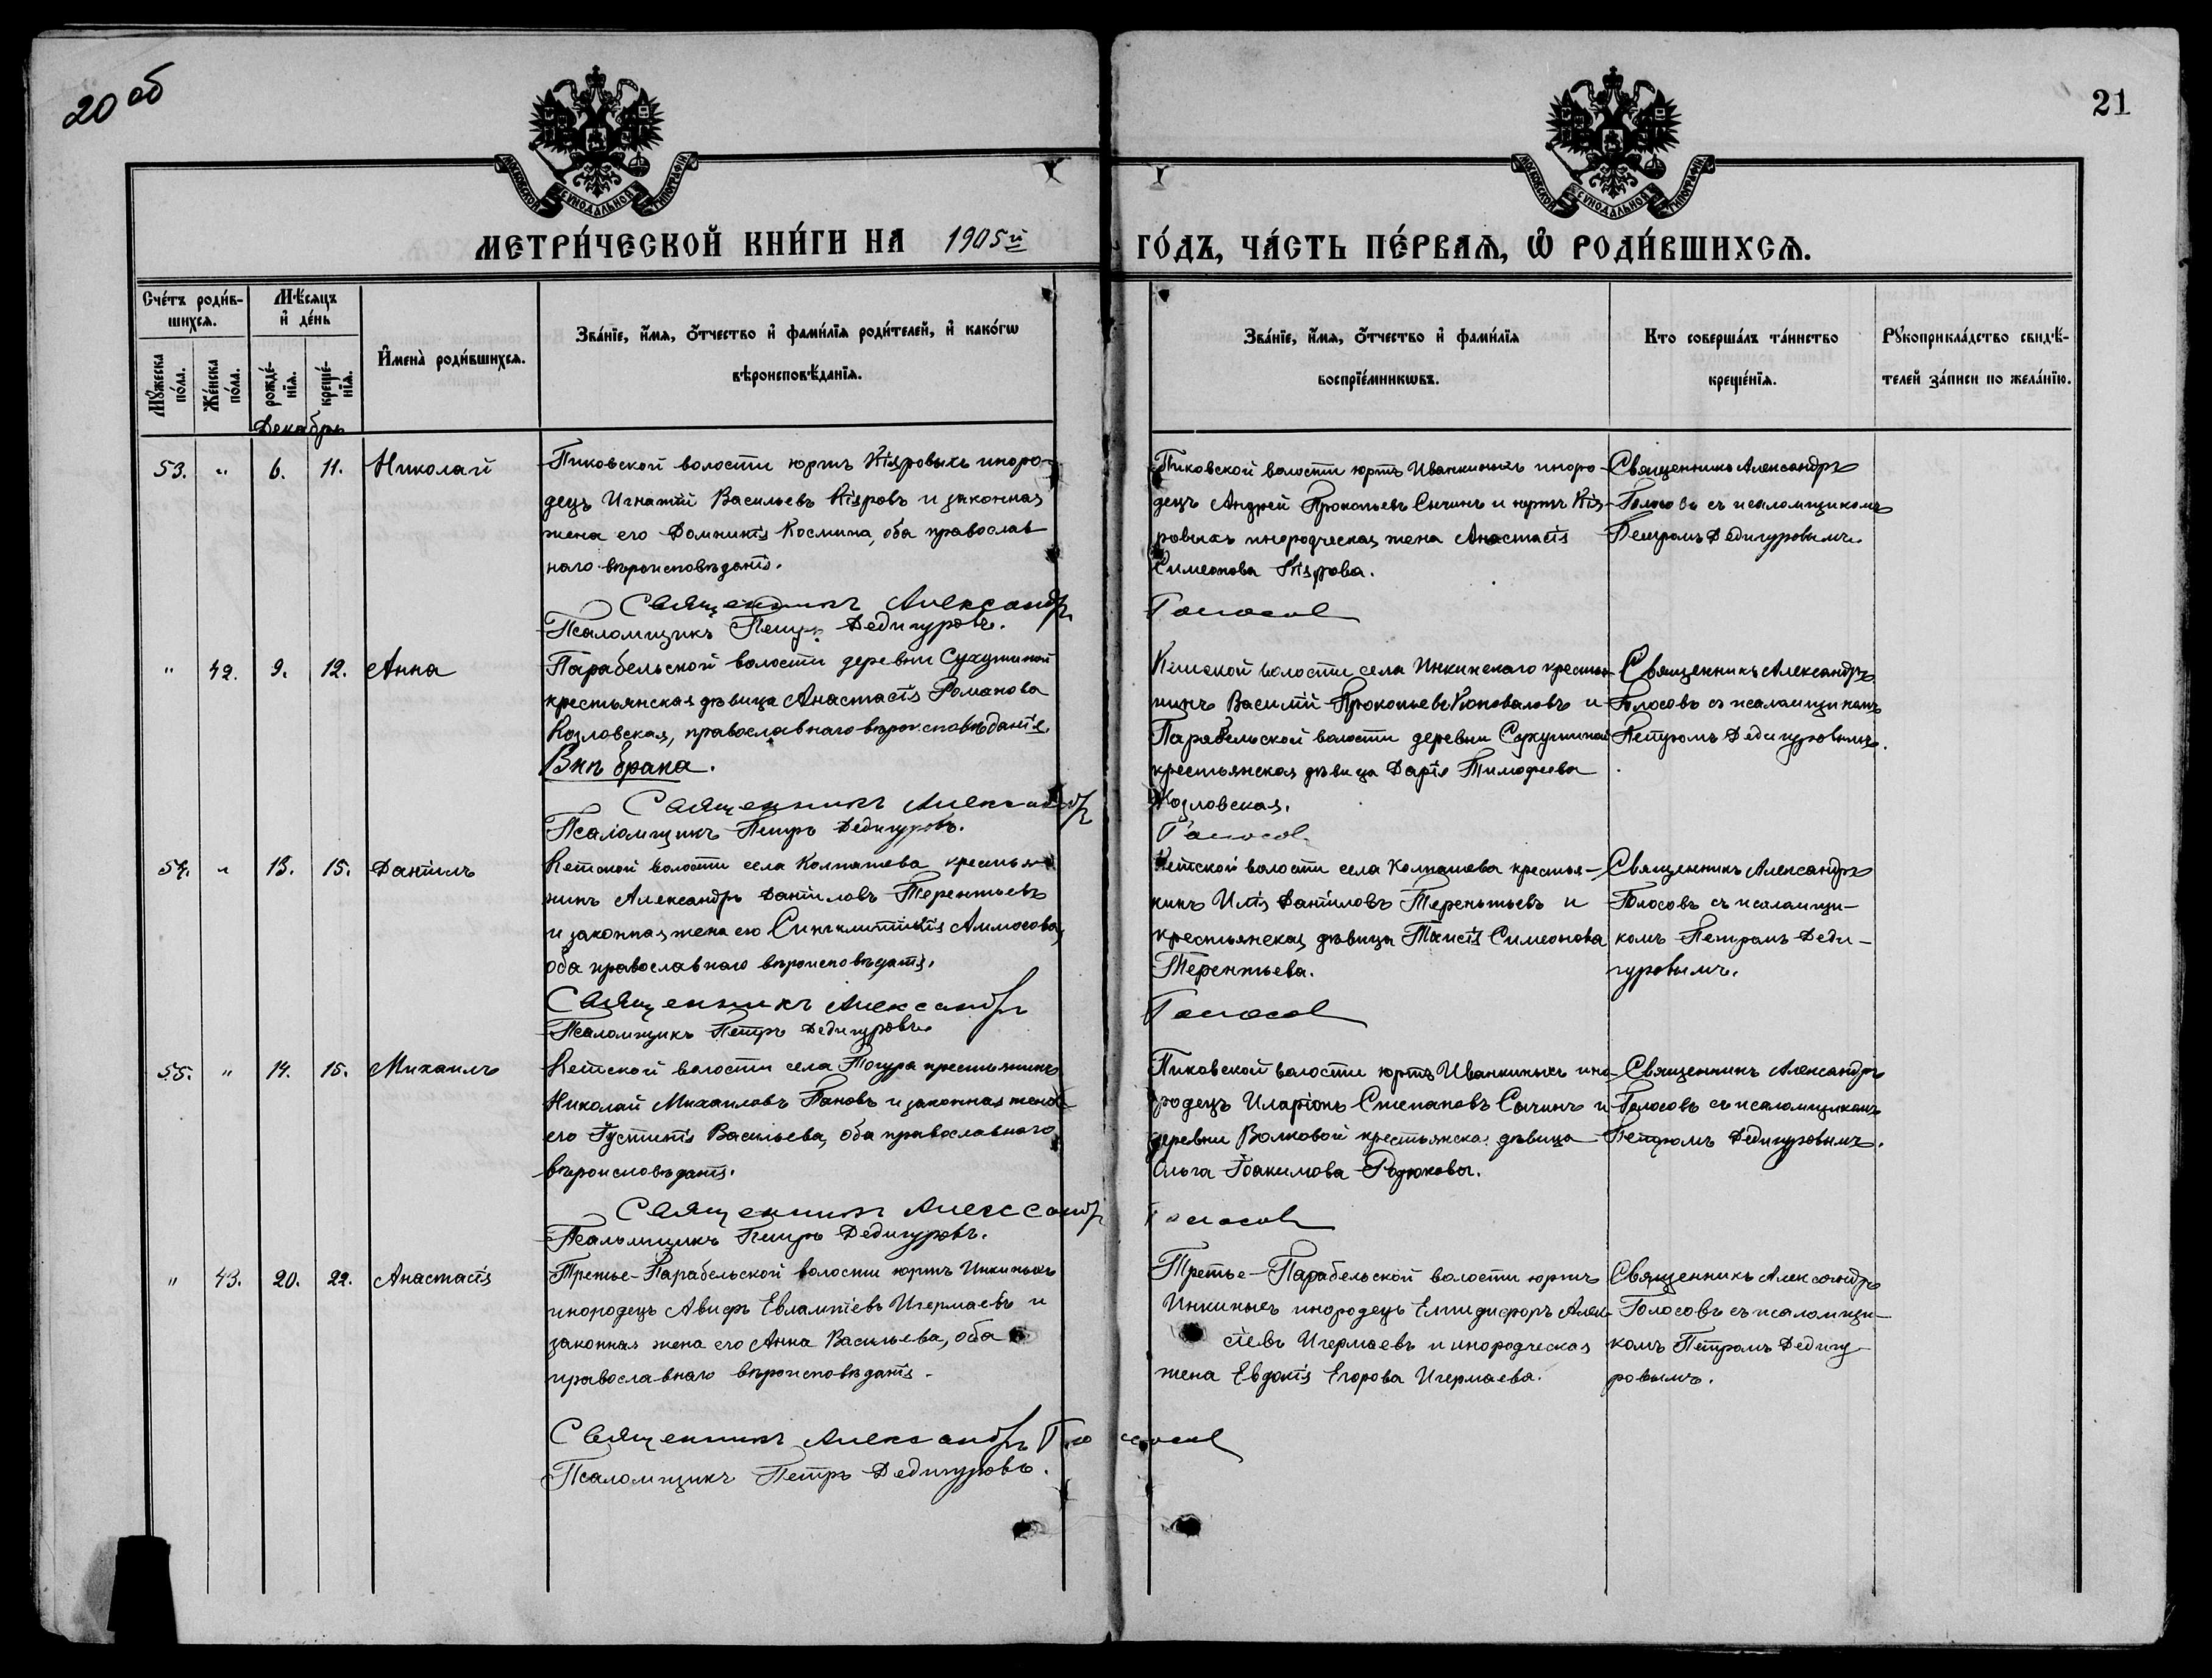 20 об
21
МОСКОВСКОЙ СѴНОДАЛЬНОЙ ТИПОГРАФІИ
МОСКОВСКОЙ СѴНОДАЛЬНОЙ ТИПОГРАФІИ
МЕТРИ́ЧЕСКОЙ КНИ́ГИ НА 1905й ГО́ДЪ, ЧА́СТЬ ПЕ́РВАѦ, Ѡ҆ РОДИ́ВШИХСѦ.
Сче́тъ роди́в-
шихсѧ.
Мꙋ́жеска по́ла.
Же́нска по́ла.
Мѣ́сѧцъ
и҆ де́нь
рожде́-
нїѧ.
креще́-
нїѧ.
И҆мена̀ роди́вшихсѧ.
Зва́нїе, и҆́мѧ, ѻ҆́тчество и҆ фами́лїѧ роди́телей, и҆ како́гѡ
вѣроисповѣ́данїѧ.
Зва́нїе, и҆́мѧ, ѻ҆́тчество и҆ фами́лїѧ
воспрїе́мникѡвъ.
Кто соверша́лъ та́инство
креще́нїѧ.
Рꙋкоприкла́дство свидѣ́-
телей за́писи по жела́нїю.
Декабрь
53. " 6. 11. Николай
Пиковской волости юртъ Кіяровыхъ иноро-
децъ Игнатій Васильевъ Кіяровъ и законная
жена его Домникія Космина, оба православ
наго вѣроисповѣданія.
Священникъ Александръ Голосов
Псаломщикъ Петръ Дедигуровъ.
Пиковской волости юртъ Иванкиныхъ иноро-
децъ Андрей Прокопьевъ Сычинъ и юртъ Кія-
ровыхъ инородческая жена Анастасія
Симеонова Кіярова.
Священникъ Александръ
Голосовъ съ псаломщикомъ
Петромъ Дедигуровымъ.
" 42. 9. 12. Анна
Парабельской волости деревни Сухушиной
крестьянская дѣвица Анастасія Романова
Козловская, православнаго вѣроисповѣданія.
Внѣ брака.
Священникъ Александръ Голосов
Псаломщикъ Петръ Дедигуровъ.
Кетской волости села Инкинскаго крестья-
нинъ Василій Прокопьевъ Коноваловъ и
Парабельской волости деревни Сухушиной
крестьянская дѣвица Дарія Тимофеева
Козловская.
Священникъ Александръ
Голосовъ съ псаломщикомъ
Петромъ Дедигуровымъ.
54. " 13. 15. Даніилъ
Кетской волости села Колпашева крестья-
нинъ Александръ Даніиловъ Терентьевъ
и законная жена его Синклитикія Аммосова,
оба православнаго вѣроисповѣданія.
Священникъ Александръ Голосов
Псаломщикъ Петръ Дедигуровъ.
Кетской волости села Колпашева крестья-
нинъ Илія Даніиловъ Терентьевъ и
крестьянская дѣвица Таисія Симеонова
Терентьева.
Священникъ Александръ
Голосовъ съ псаломщи-
комъ Петромъ Деди-
гуровымъ.
55. " 14. 15. Михаилъ
Кетской волости села Тогура крестьянинъ
Николай Михаиловъ Пановъ и законная жена
его Іустинія Васильева, оба православнаго
вѣроисповѣданія.
Священникъ Александръ Голосов
Псаломщикъ Петръ Дедигуровъ.
Пиковской волости юртъ Иванкиныхъ ино-
родецъ Иларіонъ Степановъ Сычинъ и
деревни Волковой крестьянская дѣвица
Ольга Іоакимова Родюкова.
Священникъ Александръ
Голосовъ съ псаломщикомъ
Петромъ Дедигуровымъ.
" 43. 20. 22. Анастасія
Третье-Парабельской волости юртъ Инкиныхъ
инородецъ Авифъ Евлампіевъ Игермаевъ и
законная жена его Анна Васильева, оба
православнаго вѣроисповѣданія.
Священникъ Александръ Голосов
Псаломщикъ Петръ Дедигуровъ.
Третье-Парабельской волости юртъ
Инкиныхъ инородецъ Елпидифоръ Алек-
сіевъ Игермаевъ и инородческая
жена Евдокія Егорова Игермаева.
Священникъ Александръ
Голосовъ съ псаломщи-
комъ Петромъ Дедигу-
ровымъ.